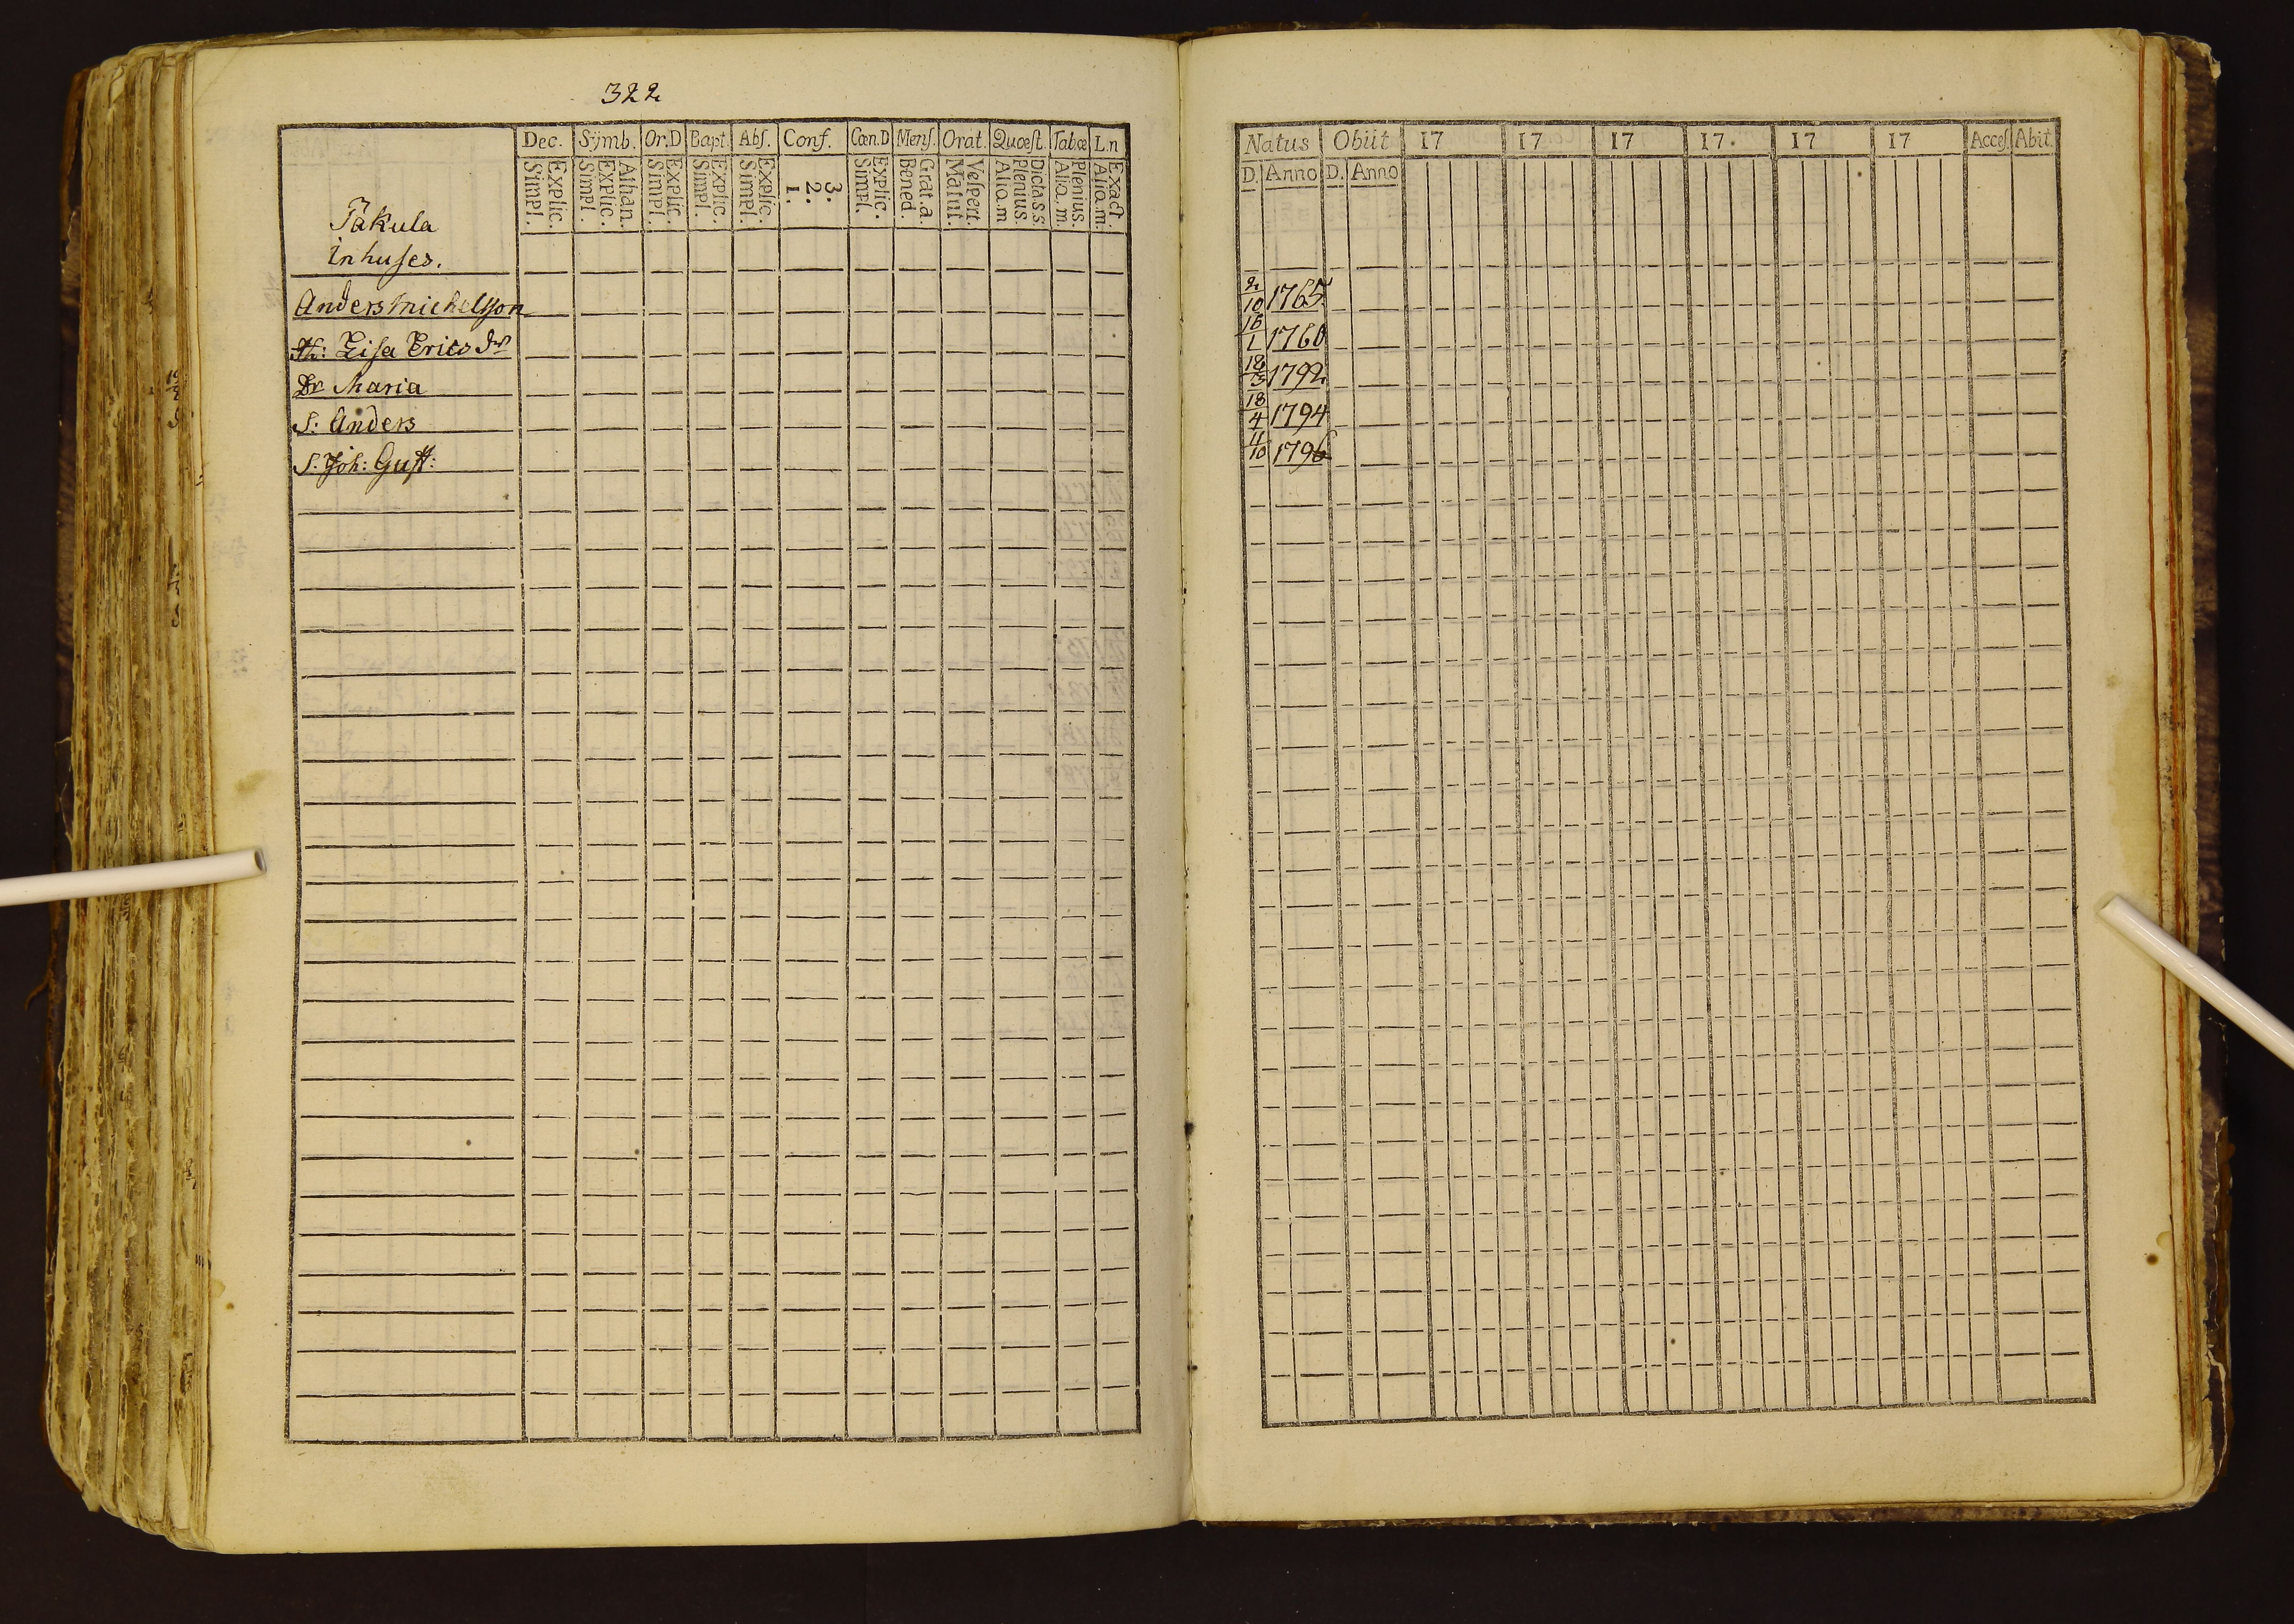 322
Dec. Sÿmb. Or.D Bapt. Abſ. Conf. Cœn.D Menſ. Orat. Quœſt. Tab.œ L.n
Explic. Simpl. Athan. Explic. Simpl. Explic. Simpl. Explic. Simpl. Explic. Simpl. 3. 2. 1. Explic. Simpl. Grat.a. Bened. Veſpert. Matut. Dicta s.s. Plenius. Aliq.m Plenius. Aliq.m. Exact. Aliq.m.
Jakula
Inhuſes.
Anders Michelsson
H: Liſa Erics dr
Dr Maria
S: Anders
S: Joh: Guſt:
Natus Obiit 17 17 17 17. 17 17 Acceſ. Abit.
D. Anno D. Anno
2/10 1765
16/1 1760
18/3 1792
18/4 1794
11/10 1796